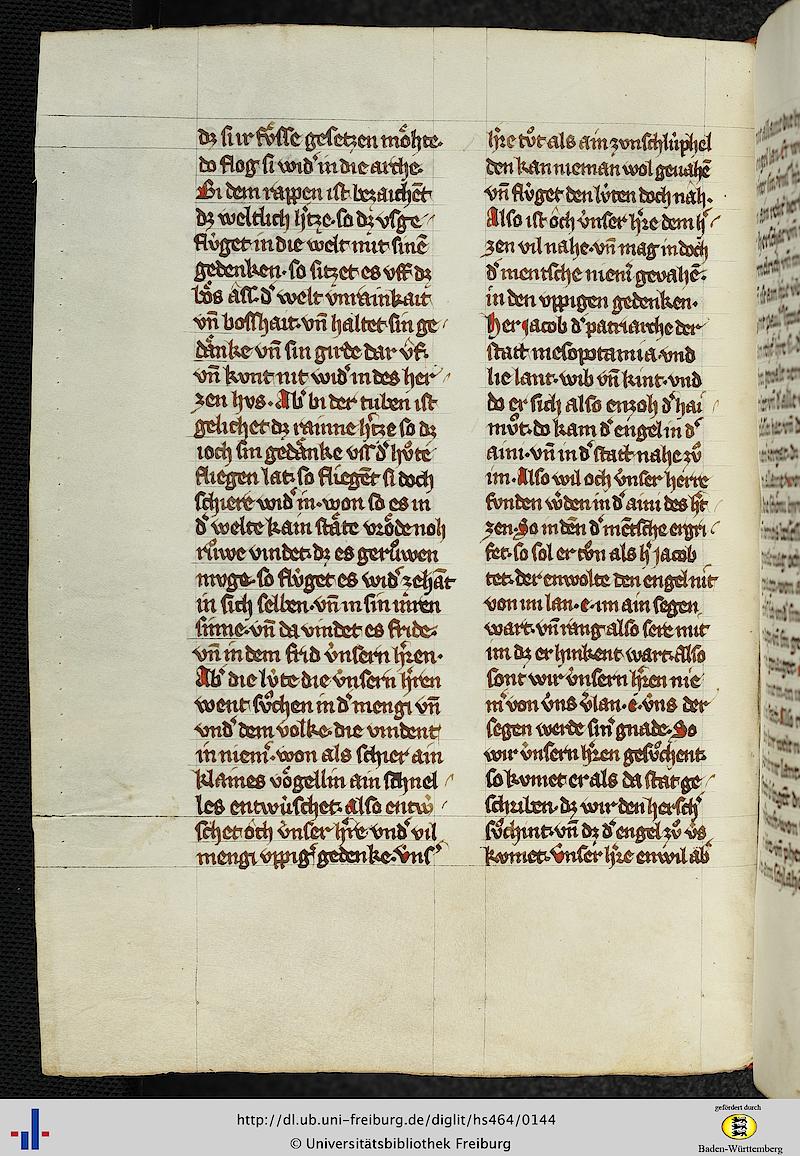 dz si ir fuͦsse gesetzen moͤhte.
do flog si wid' in die arche.
Bi dem rappen ist bezaichēt
dz weltlich h'tze. so dz vsge
fluget in die welt mit sinē
gedenken. so sitzet es vff dz
boͤs ass. d' welt vnrainkait
vn̄ bosshait. vn̄ haltet sin ge
daͤnke vn̄ sin girde dar vf.
vn̄ kvnt nit wid' in des her
zen hvs. Ab' bi der tuben ist
gelichet dz rainne h'tze so dz
ioch sin gedaͤnke vss d' huͦte
fliegen lat. so fliegēt si doch
schiere wid' in. won so es in
d' welte kain staͤte vroͤde noh
ruͦwe vindet. dz es geruͦwen
mvge. so flv́get es wid' zehāt
in sich selben. vn̄ in sin inren
sinne. vn̄ da vindet es fride.
vn̄ in dem frid v́nsern h'ren.
Ab' die lv́te die v́nsern h'ren
went suͦchen in d' mengi vn̄
vnd' dem volke. die vindent
in niem'. won als schier ain
klaines voͤgellin ain schnel
les entwúschet. also entwú
schet och v́nser h're vnd' vil
mengi vppig' gedenke. v́ns'
h're tuͦt als ain zvnschlúphel
den kan nieman wol geuahē
vn̄ flv́get den lv́ten doch nah.
Also ist och v́nser h're dem h'
zen vil nahe. vn̄ mag in doch
d' mentsche niem' gevahē.
in den vppigen gedenken.
her jacob d' patriarche der
statt mesopotamia. vnd
lie lant. wib vn̄ kint. vnd
do er sich also enzoh d' hai
muͦt. do kam d' engel in d'
aini. vn̄ in d' statt nahe zuͦ
im. Also wil och v́nser herre
fvnden w'den in d' aini des h't
zen. So in dēn d' mētsche ergri
fet. so sol er tuͦn als h' jacob
tet. der enwolte den engel nit
von im lan. e. im ain segen
wart. vn̄ rang also sere mit
im dz er hinkent wart. also
sont wir v́nsern h'ren nie
m' von v́ns v'lan. e. v́ns der
segen werde sin' gnade. So
wir v́nsern h'ren gesuͦchent.
so kvmet er als da stat ge
schriben. dz wir den hersch'
suͦchint. vn̄ dz d' engel zuͦ v́s
kvmet. v́nser h're enwil ab'
http://dl.ub.uni-freiburg.de/diglit/hs464/0144
© Universitätsbibliothek Freiburg
gefördert durch
Baden-Württemberg